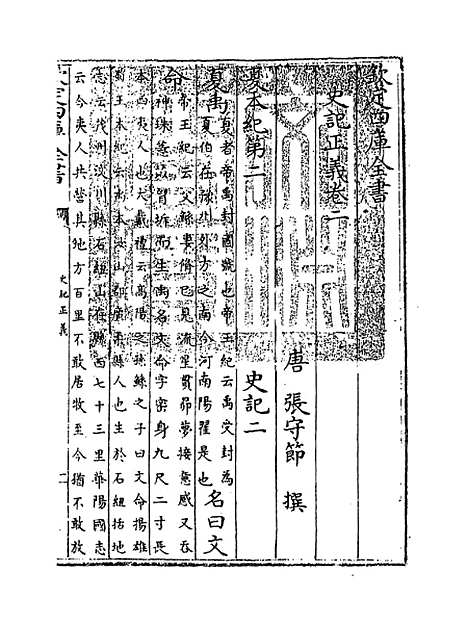 欽定四庫全書
史記正義卷二
唐 張守節 撰
夏本紀第二 史記二
夏禹
夏者帝禹封國號也帝王紀云禹受封為
夏伯在豫州外方之南今河南陽翟是也
名曰文
命
帝王紀云父鯀妻脩己見流星貫昴夢接意感又吞
神珠薏苡胷坼而生禹名文命字密身九尺二寸長
本西夷人也大戴禮云高陽之孫鯀之子曰文命揚雄
蜀王本紀云禹本汶山郡廣柔縣人也生於石紐括地
志云茂州汶川縣石紐山在縣西七十三里華陽國志
云今夷人共營其地方百里不敢居牧至今猶不敢放
欽定四庫全書
史記正義